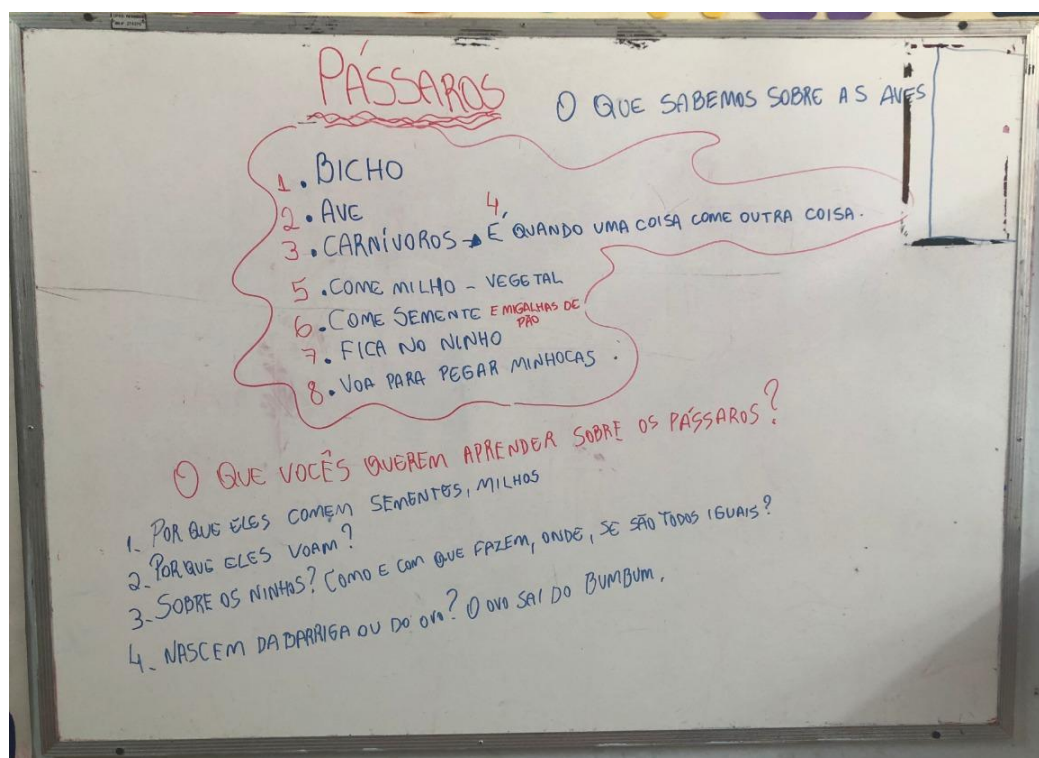 PÁSSAROS
O QUE SABEMOS SOBRE AS AVES
1. BICHO
2. AVE
3. CARNÍVOROS → 4. É QUANDO UMA COISA COME OUTRA COISA.
5. COME MILHO - VEGETAL
6. COME SEMENTE E MIGALHAS DE
PÃO
7. FICA NO NINHO
8. VOA PARA PEGAR MINHOCAS.
O QUE VOCÊS QUEREM APRENDER SOBRE OS PÁSSAROS?
1. POR QUE ELES COMEM SEMENTES, MILHOS
2. PORQUE ELES VOAM?
3. SOBRE OS NINHOS? COMO E COM QUE FAZEM, ONDE, SE SÃO TODOS IGUAIS?
4. NASCEM DA BARRIGA OU DO OVO? O OVO SAI DO BUMBUM.